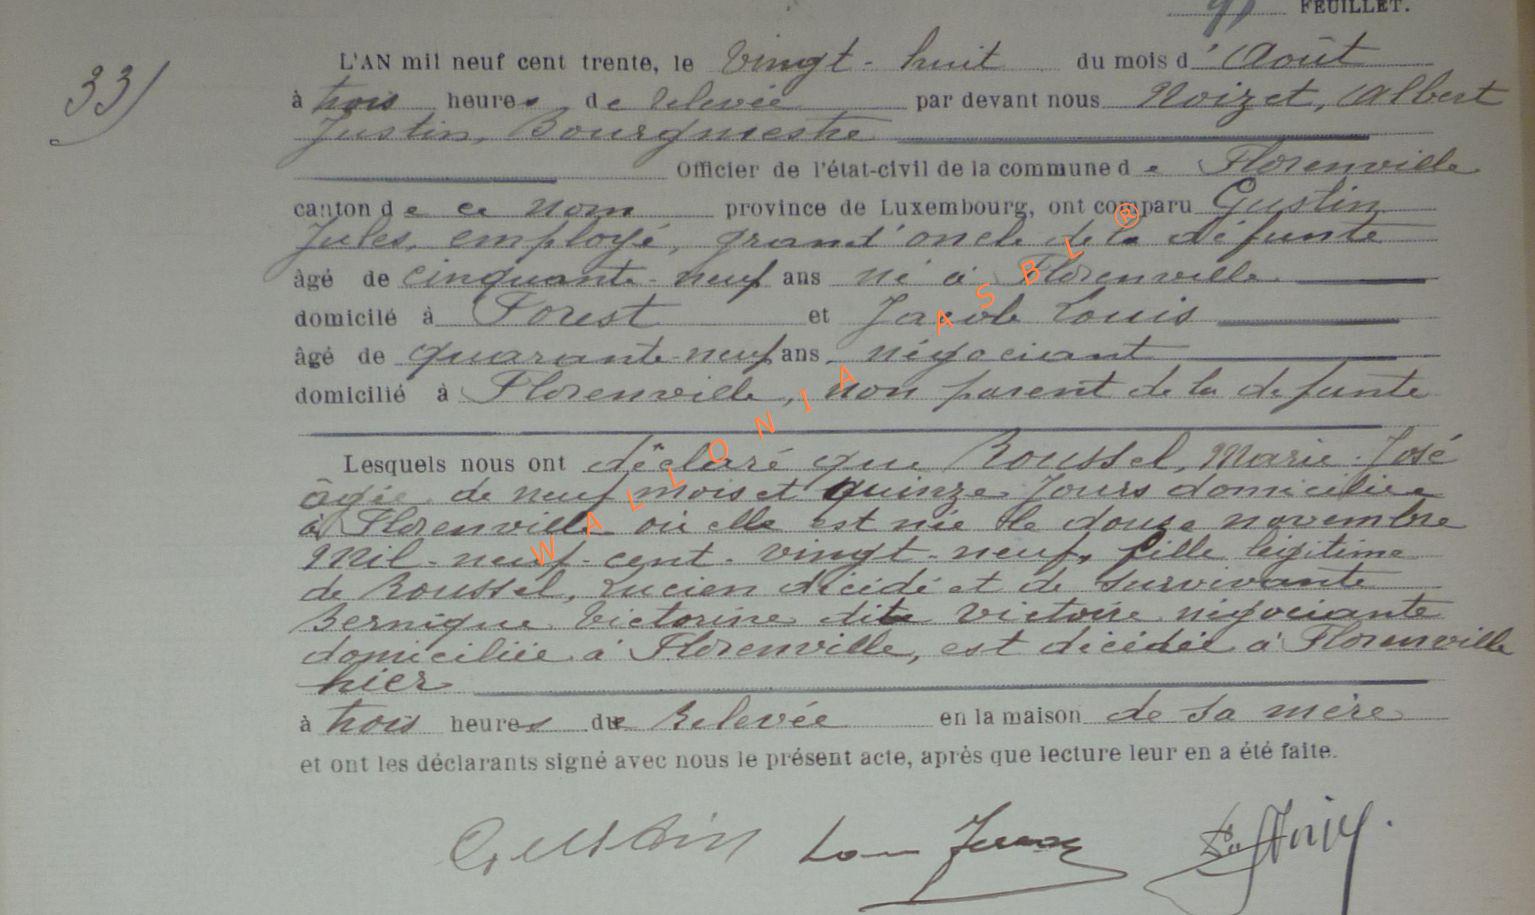 FEUILLET.
33)
L'AN mil neuf cent trente, le vingt-huit du mois d'Août
à trois heures de relevée par devant nous Noizet, Albert
Justin, Bourgmestre
Officier de l'état-civil de la commune de Florenville
canton de ce nom province de Luxembourg, ont comparu Gustin
Jules, employé, grand'oncle de la défunte
âgé de cinquante-neuf ans né à Florenville
domicilé à Forest et Jacob Louis
âgé de quarante-neuf ans, négociant
domicilié à Florenville, non parent de la defunte
Lesquels nous ont déclaré que Roussel, Marie-José
âgée de neuf mois et quinze jours domiciliée
à Florenville où elle est née le douze novembre
mil-neuf-cent-vingt-neuf, fille légitime
de Roussel, Lucien décédé et de survivante
Bernique Victorine dite Victoire négociante
domiciliée à Florenville, est décédée à Florenville
hier
à trois heures de Relevée en la maison de sa mère
et ont les déclarants signé avec nous le présent acte, après que lecture leur en a été faite.
Gustin
WALLONIA ASBL ®